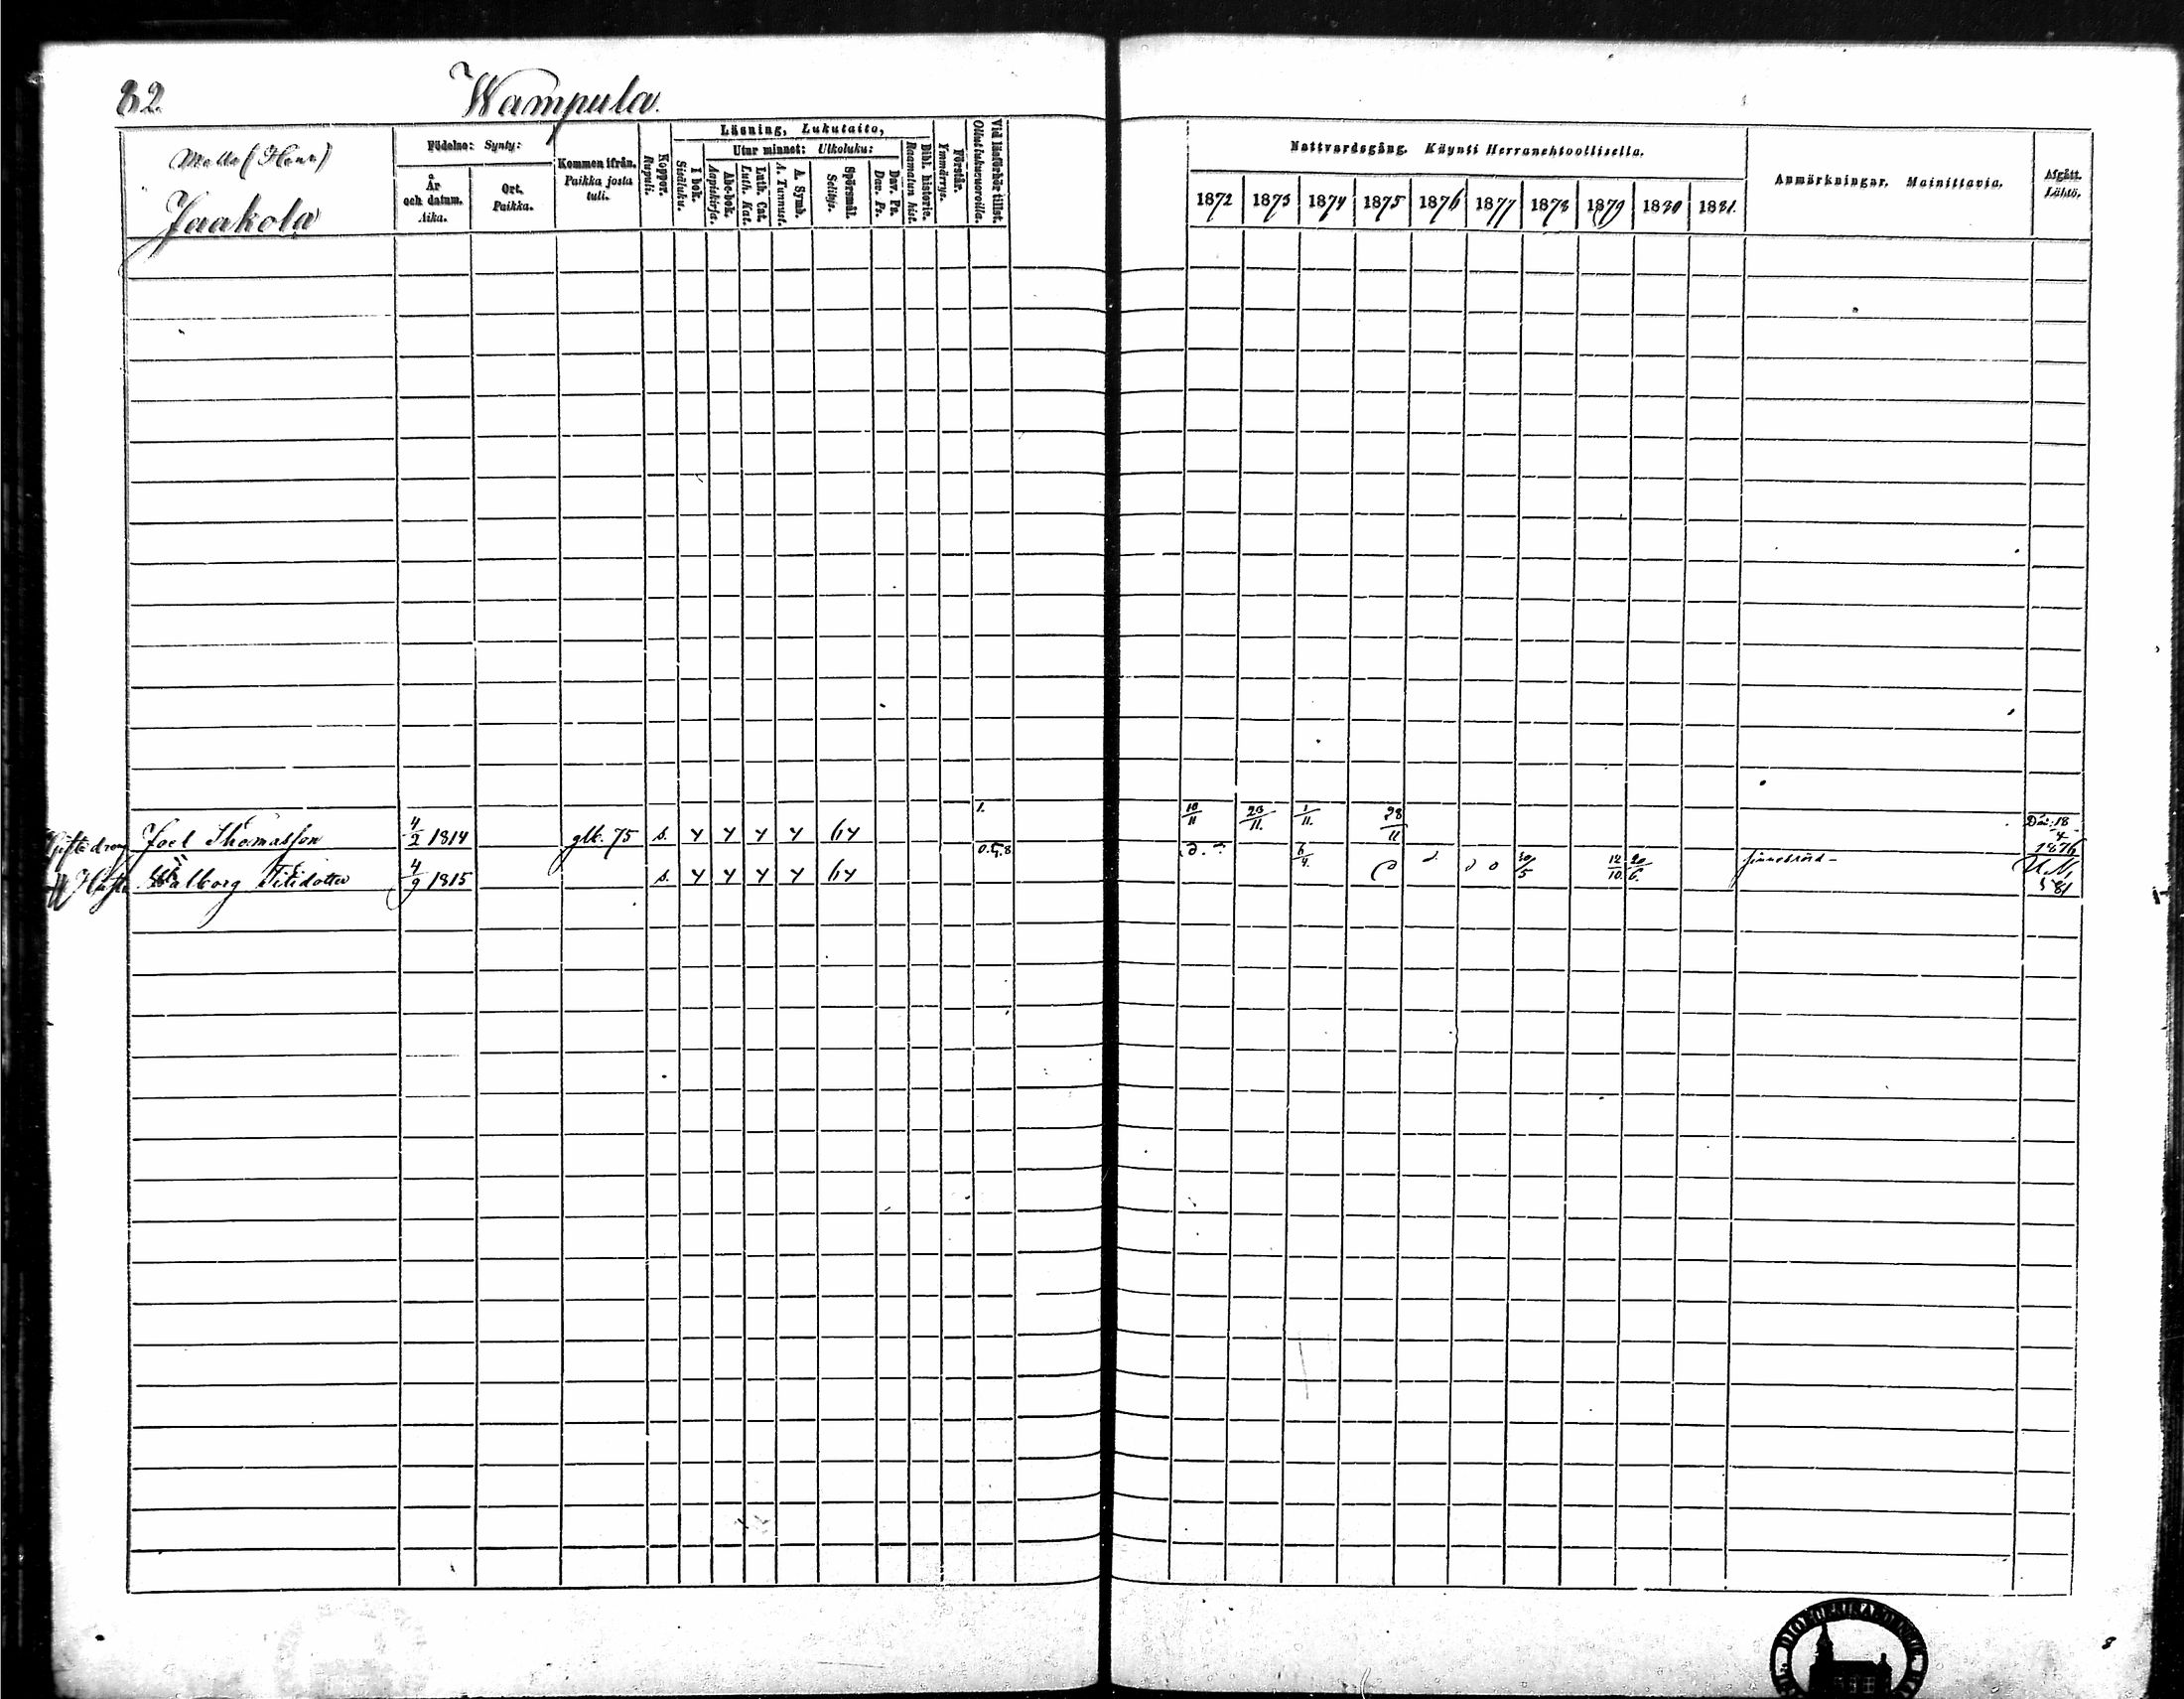 82.
Wampula.
Jaakola
Födelse: Synty:
År och datum. Aika.
Ort. Paikka.
Kommen ifrån. Paikka josta tuli.
Koppor. Rupuli.
Läsning, Lukutaito,
I bok. Sisäluku.
Utur minnet: Ulkoluku:
Abc-bok. Aapiskirja.
Luth. Cat. Luth. Kat.
A. Symb. A. Tunnust.
Spörsmål. Selitys.
Dav. Ps. Dav. Ps.
Bibl. historie. Raamatun hist.
Förstår. Ymmärrys.
Vid läsförhör tillst. Ollut lukuvuoroilla.
Nattvardsgång. Käynti Herranehtoollisella.
1872 1873 1874 1875 1876 1877 1878 1879 1880 1881.
Anmärkningar. Mainittavia.
Afgått. Lähtö.
Joel Thomasson 4/2 1814 glk. 75 s. y y y y 1. 10/11 23/11. 1/11. 28/11 Död 18/4 1876
Walborg 4/9 1815 s. y y y y 0.5.8 6/4. 30/5 12/10. 20/6. sinnesrörd 81